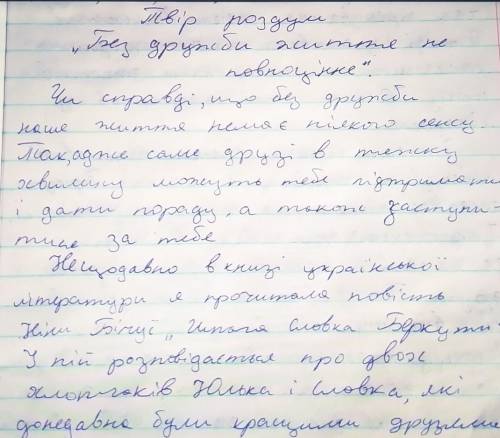 Твір роздум
„Без дружби життя не
повноцінне".
Чи справді, що без дружби
наше життя немає ніякого сенсу.
Так, адже саме друзі в тяжку
хвилину можуть тебе підтримати
і дати пораду, а також заступи-
тися за тебе
Нещодавно в книзі української
літератури я прочитала повість
Ніни Бічуї „Шпага Славка Беркути"
У ній розповідається про двох
хлопчаків Юлька і Славка, які
донедавна були кращими друзями